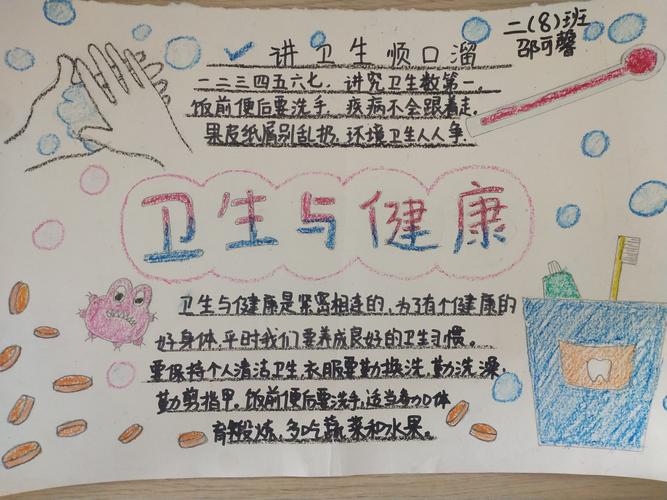 二(8)班
邵可馨
讲卫生顺口溜
一二三四五六七,讲究卫生数第一。
饭前便后要洗手,疾病不会跟着走。
果皮纸屑别乱扔,环境卫生人人争。
卫生与健康
卫生与健康是紧密相连的,为了有个健康的
好身体,平时我们要养成良好的卫生习惯。
要保持个人清洁卫生,衣服要勤换洗,勤洗澡,
勤剪指甲。饭前便后要洗手,适当参加体
育锻炼,多吃蔬菜和水果。